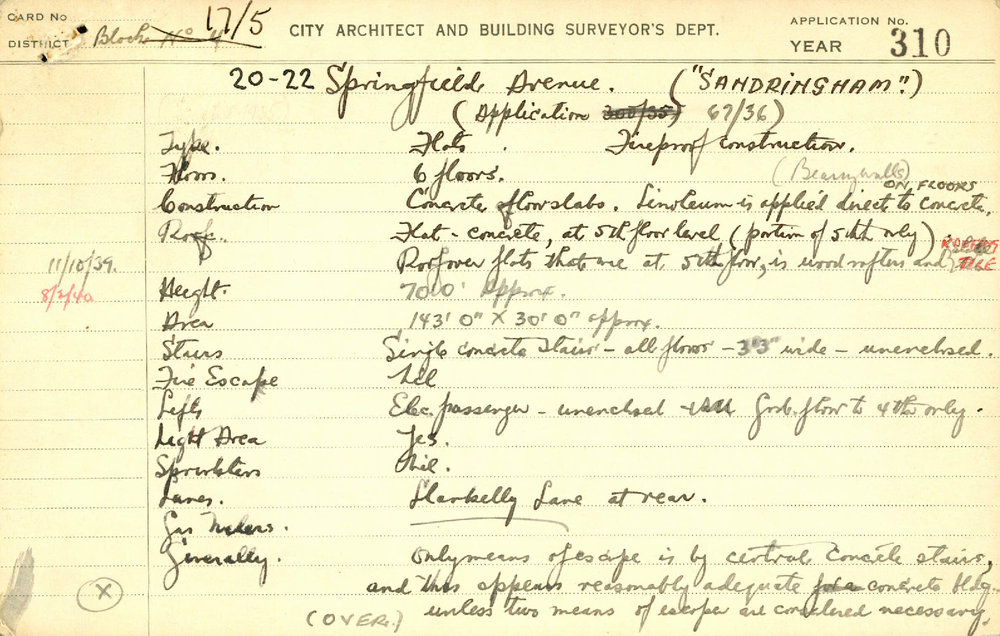 CARD No 17/5
DISTRICT Block No 4
CITY ARCHITECT AND BUILDING SURVEYOR'S DEPT.
APPLICATION No.
YEAR 310
20-22 Springfield Avenue. ("SANDRINGHAM".)
(Application 300/35) 67/36)
Type. Flats. Fireproof construction.
Floors. 6 floors. (Bearing walls)
ON FLOORS
Construction Concrete floorslabs. Linoleum is applied direct to concrete.
Roof. Flat - concrete, at 5th floor level (portion of 5th only)
11/10/39. Roof over flats that are at 5th floor, is wood rafters and TILE
8/2/40 Height. 70' 0' approx.
Area 143' 0" X 30' 0" approx.
Stairs Single concrete stairs - all floors - 3'3" wide - unenclosed.
Fire Escape Nil
Lifts Elec. passenger - unenclosed - Grd. floor to 4th only.
Light Area Yes.
Sprinklers Nil.
Lanes. Lane at rear.
Gas Meters.
Generally. Only means of escape is by central concrete stairs,
and this appears reasonably adequate for a concrete bldg.
unless two means of escape are considered necessary.
X (OVER.)